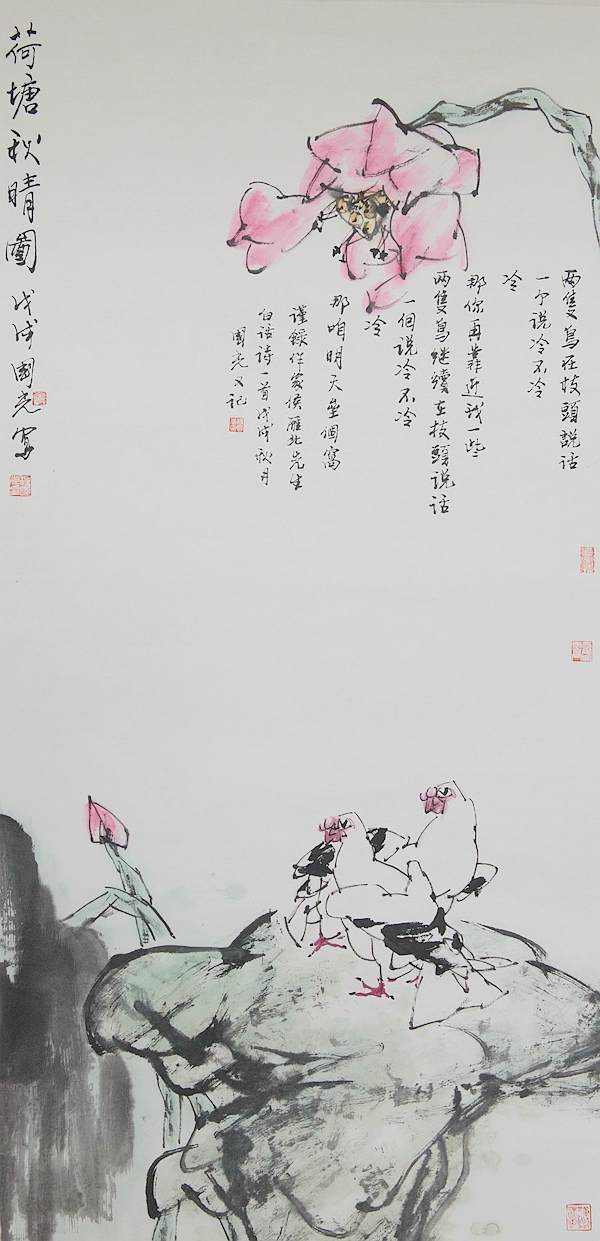 两隻鳥在枝頭説话
一个说冷不冷
冷
那你再靠近我一些
两隻鳥继續在枝頭说话
一個说冷不冷
冷
那咱明天壘個窩
謹録作家侯雁北先生
白话詩一首戊戌秋月
國光又记
荷塘秋晴圖 戊戌國光寫